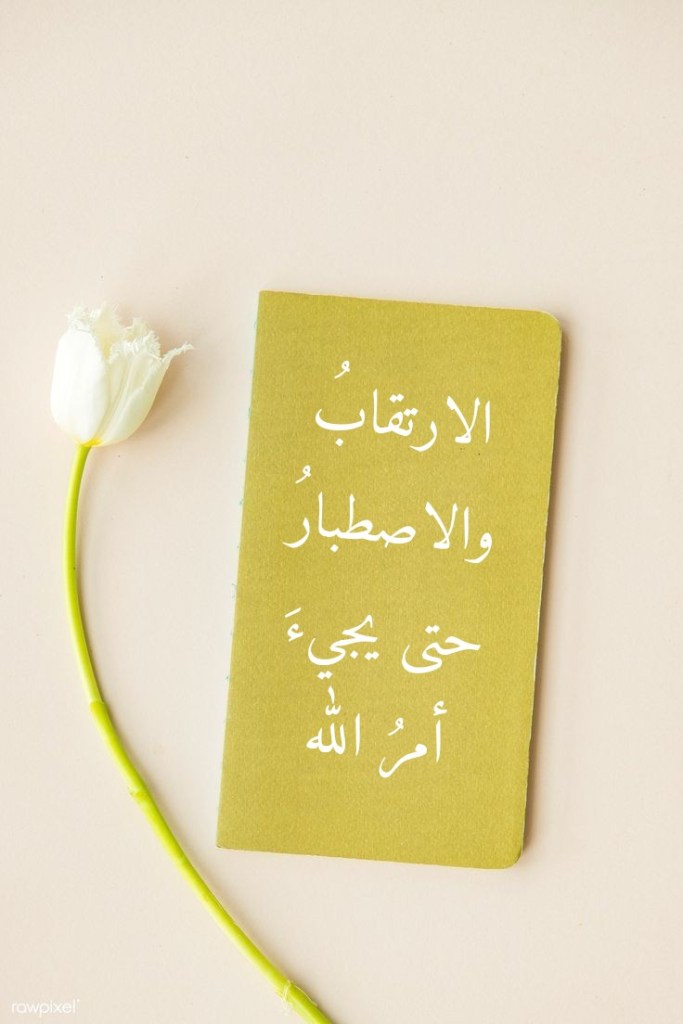 الارتقابُ
والاصطبارُ
حتى يجيءَ
أمرُ الله
rawpixel